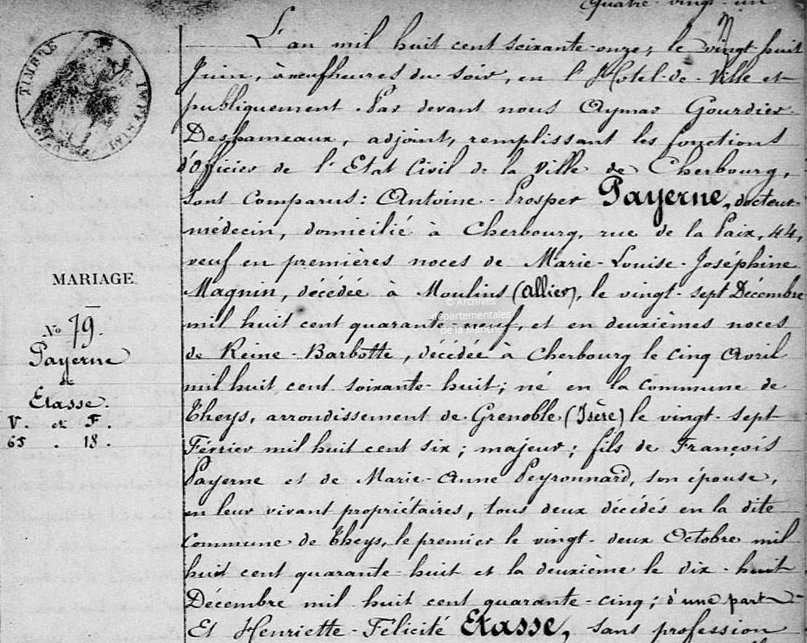 Quatre-vingt-un
L'an mil huit cent soixante-onze, le vingt huit
Juin, à neuf heures du soir, en l'Hotel-de-Ville et
publiquement. Par devant nous Aymar Gourdier-
Deshameaux, adjoint, remplissant les fonctions
d'Officier de l'Etat Civil de la Ville de Cherbourg,
sont Comparus: Antoine-Prosper Payerne, docteur
médecin, domicilié à Cherbourg, rue de la Paix, 44,
veuf en premières noces de Marie-Louise-Joséphine
Magnin, décédée à Moulins (Allier), le vingt-sept Décembre
mil huit cent quarante-neuf, et en deuxièmes noces
de Reine-Barbotte, décédée à Cherbourg le cinq Avril
mil huit cent soixante-huit; né en la Commune de
Theys, arrondissement de Grenoble (Isère) le vingt-sept
Février mil huit cent six; majeur; fils de François
Payerne et de Marie-Anne Peyronnard, son épouse,
en leur vivant propriétaires, tous deux décédés en la dite
Commune de Theys, le premier le vingt-deux Octobre mil
huit cent quarante-huit et la deuxième le dix-huit
Décembre mil huit cent quarante-cinq; d'une part
Et Henriette-Félicité Etasse, sans profession
TIMBRE IMPERIAL
MARIAGE
No 79.
Payerne
&
Etasse.
V. et F.
65. 18.
© Archives
départementales
de la Manche